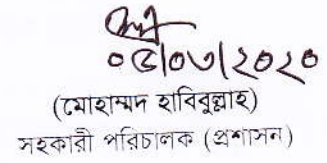 ০৫/০৩/২০২০
(মোহাম্মদ হাবিবুল্লাহ)
সহকারী পরিচালক (প্রশাসন)